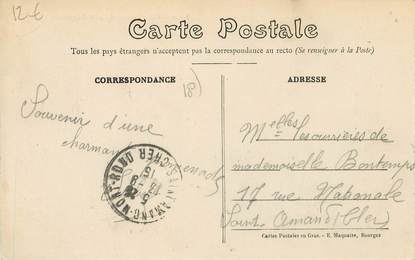 12€
Carte Postale
Tous les pays étrangers n'acceptent pas la correspondance au recto (Se renseigner à la Poste)
CORRESPONDANCE
ADRESSE
18)
Souvenir d'une
charmante promenade
SAINT-AMAND-MONT-ROND
CHER
Melles les ouvrières de
mademoiselle Bontemps
17 rue Nationale
Saint Amand (Cher)
Cartes Postales en Gros. - E. Maquaire, Bourges